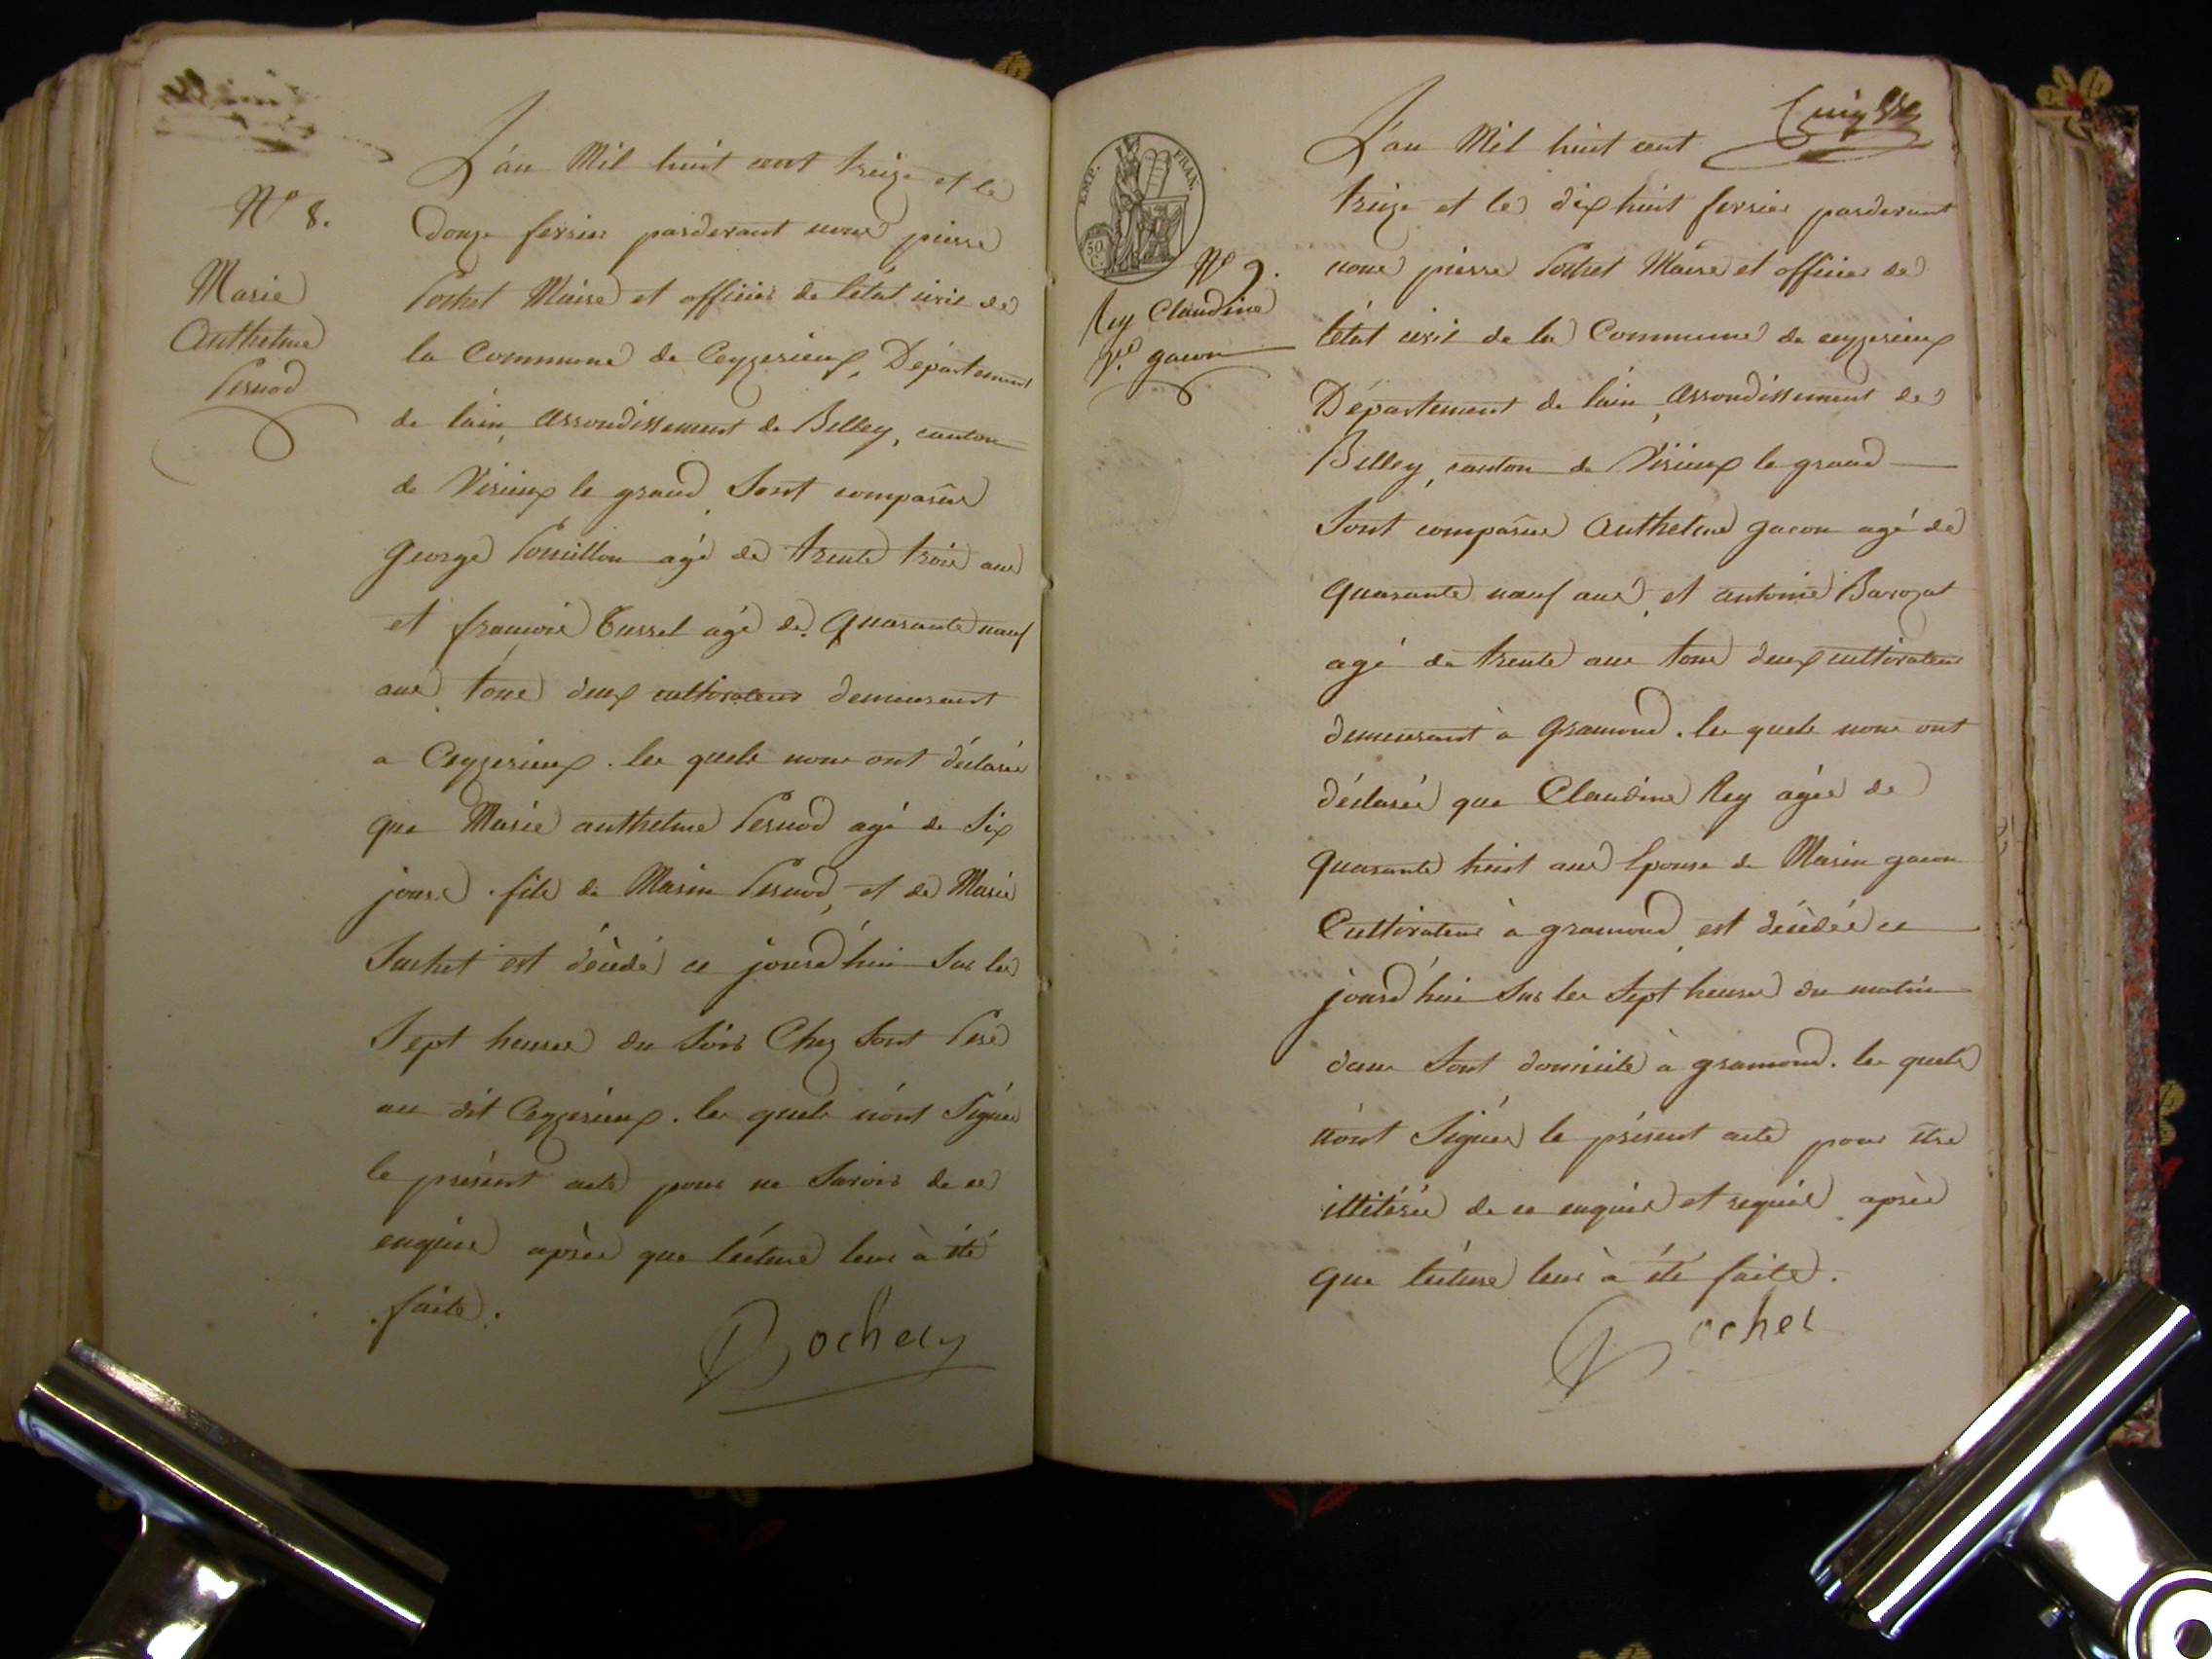 N° 8.
Marie
Anthelme
Pernod
L'an Mil huit cent treize et le
douze fevrier pardevant nous pierre
Pochet Maire et officier de l'état civil de
la Commune de Ceyzerieux, Département
de l'ain, Arrondissement de Belley, canton
de Virieux le grand, Sont comparûs
George agé de trente trois ans
et françois Cusset agé de Quarante neuf
ans, tous deux cultivateurs demeurant
a Ceyzerieux. les quels nous ont déclarés
que Marie anthelme Pernod agé de Six
jours. fils de Marin Pernod, et de Marie
Suchet est décédé ce jourd'hui Sur les
Sept heures du Soir Chez Sont Pere
au dit Ceyzerieux. les quels n'ont Signés
le présent acte pour ne Savoir de ce
enquis après que lécture leur à été
faite.
Pochet
EMP. FRAN.
50 C.
N° 9.
Rey Claudine
gacon
L'an Mil huit cent
treize et le dix huit fevrier pardevant
nous pierre Pochet Maire et officier de
l'état civil de la Commune de ceyzerieux
Département de l'ain, Arrondissement de
Belley, canton de Virieux le grand
Sont comparûs Anthelme gacon agé de
Quarante neuf ans, et antoine Barozat
agé de trente ans tous deux cultivateurs
demeurant à Gramond. les quels nous ont
déclarés que Claudine Rey agée de
Quarante huit ans Epouse de Marin gacon
Cultivateur à gramond, est décédée ce
jourd'hui Sur les Sept heures du matin
dans Sont domicile à gramond. les quels
n'ont Signés le présent acte pour être
illitérés de ce enquis et requis, après
que lécture leur à été faite.
Pochet